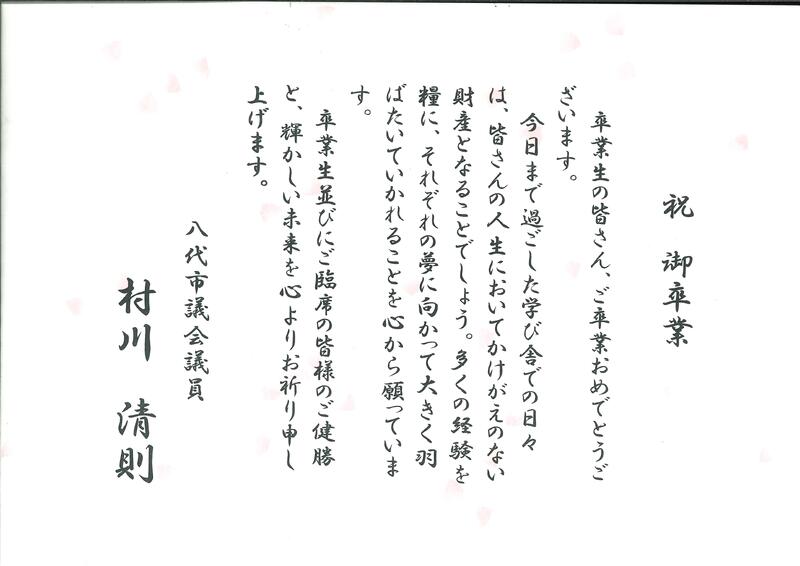 祝 御卒業
卒業生の皆さん、ご卒業おめでとうご
ざいます。
今日まで過ごした学び舎での日々
は、皆さんの人生においてかけがえのない
財産となることでしょう。多くの経験を
糧に、それぞれの夢に向かって大きく羽
ばたいていかれることを心から願っていま
す。
卒業生並びにご臨席の皆様のご健勝
と、輝かしい未来を心よりお祈り申し
上げます。
八代市議会議員
村川 清則